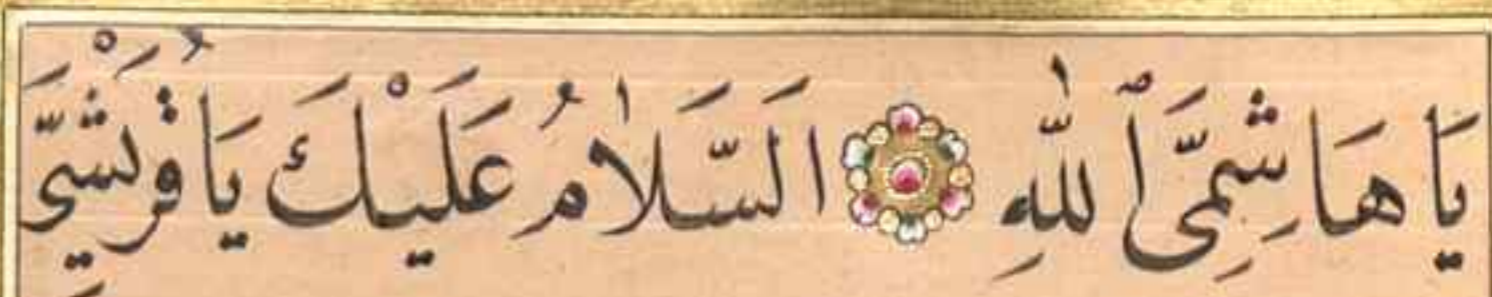 يَا هَاشِمِيَّ ٱللّٰهِ اَلسَّلَامُ عَلَيْكَ يَا قُرَيْشِيَّ